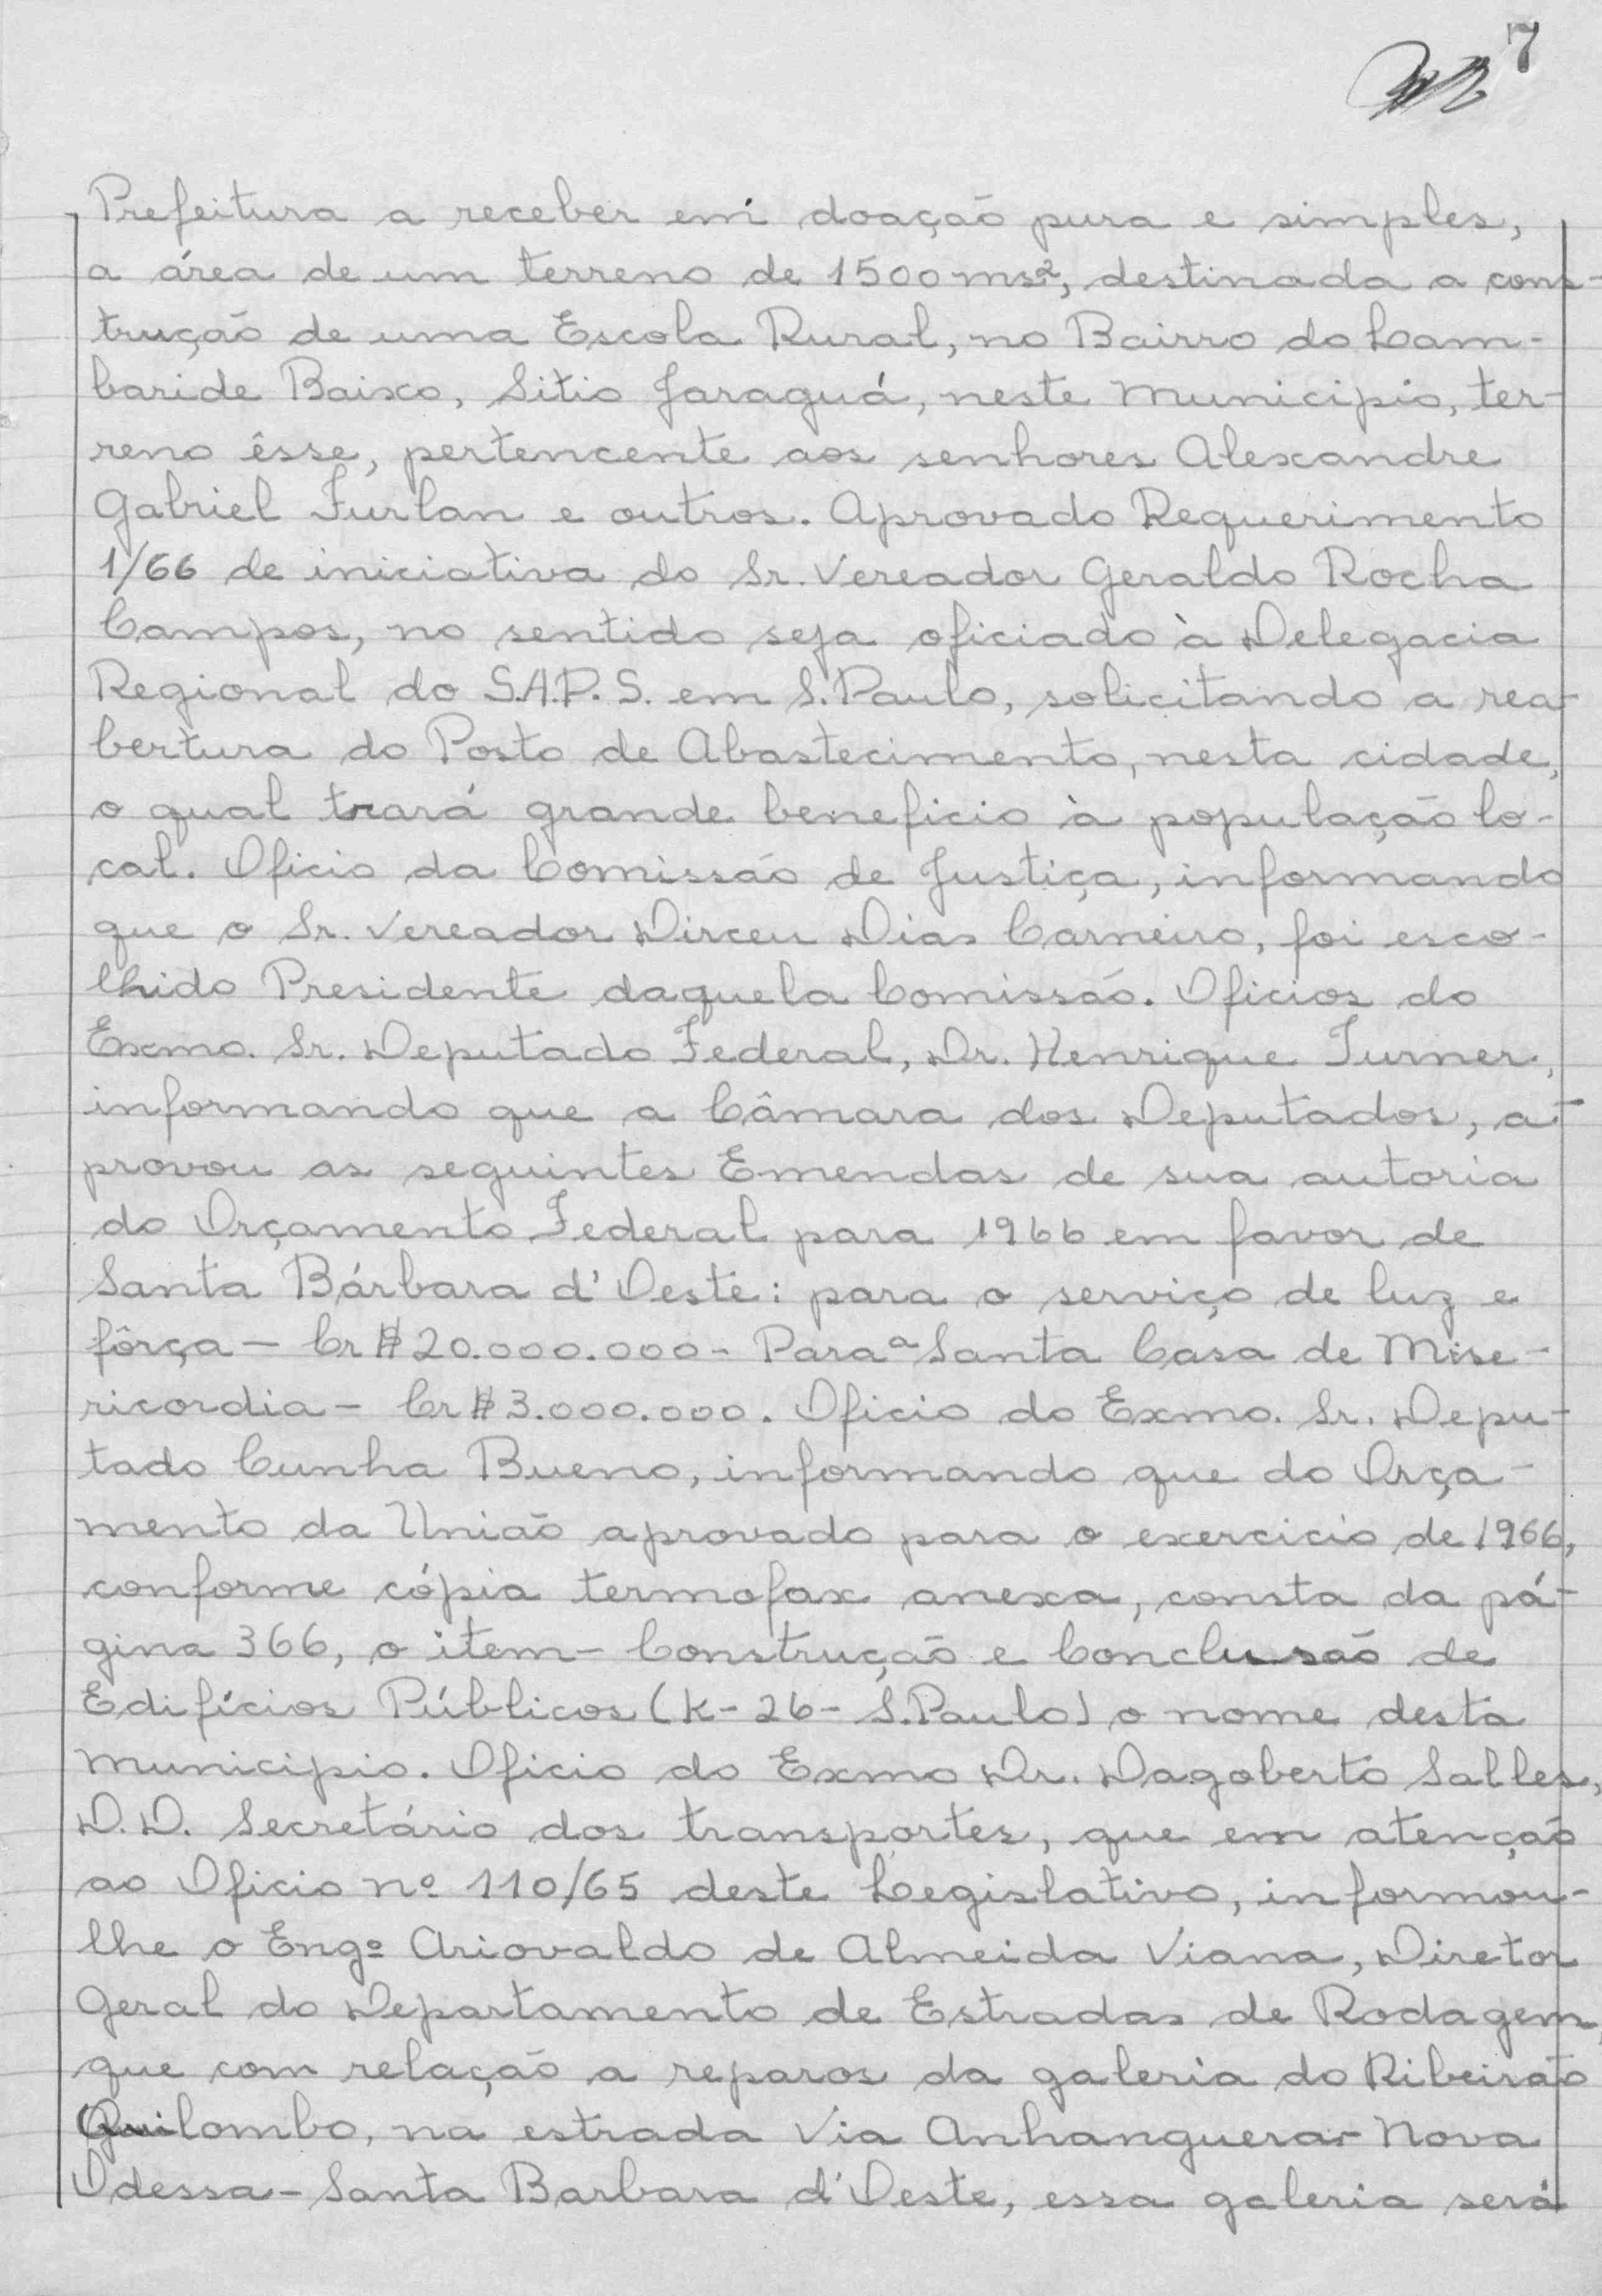 7
Prefeitura a receber em doação pura e simples,
a área de um terreno de 1500 ms², destinada a cons-
trução de uma Escola Rural, no Bairro do Lam-
baride Baixo, Sitio Jaraguá, neste Municipio, ter-
reno êsse, pertencente aos senhores Alexandre
Gabriel Furlan e outros. Aprovado Requerimento
1/66 de iniciativa do Sr. Vereador Geraldo Rocha
Campos, no sentido seja oficiado à Delegacia
Regional do S.A.P.S. em S. Paulo, solicitando a rea-
bertura do Posto de Abastecimento, nesta cidade,
o qual trará grande beneficio à população lo-
cal. Oficio da Comissão de Justiça, informando
que o Sr. Vereador Dirceu Dias Carneiro, foi esco-
lhido Presidente daquela Comissão. Oficios do
Exmo. Sr. Deputado Federal, Dr. Henrique Turner,
informando que a Câmara dos Deputados, a-
provou as seguintes Emendas de sua autoria
do Orçamento Federal para 1966 em favor de
Santa Bárbara d'Oeste: para o serviço de luz e
fôrça - Cr$ 20.000.000 - Para a Santa Casa de Mise-
ricordia - Cr$ 3.000.000. Oficio do Exmo. Sr. Depu-
tado Cunha Bueno, informando que do Orça-
mento da União aprovado para o exercicio de 1966,
conforme cópia termofax anexa, consta da pá-
gina 366, o item - Construção e Conclusão de
Edifícios Públicos (K-26- S. Paulo) o nome desta
municipio. Oficio do Exmo Dr. Dagoberto Salles,
D.D. Secretário dos transportes, que em atenção
ao Oficio nº 110/65 deste Legislativo, informou-
lhe o Engº Ariovaldo de Almeida Viana, Diretor
Geral do Departamento de Estradas de Rodagem,
que com relação a reparos da galeria do Ribeirão
Quilombo, na estrada Via Anhanguera - Nova
Odessa - Santa Barbara d'Oeste, essa galeria será